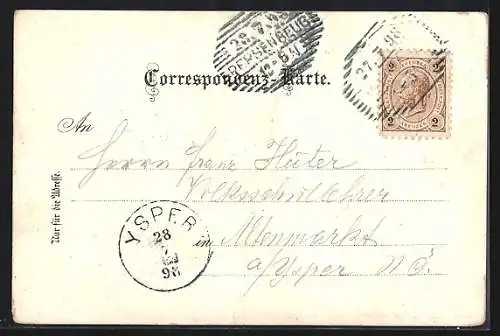 28.7.98
PERSENBEUG
27.7.98
Correspondenz-Karte.
2 2
An
Herrn Franz Hüter
Volksschullehrer
in Altenmarkt
a/Ysper N.Ö.
Nur für die Adresse.
YSPER
28
7
98